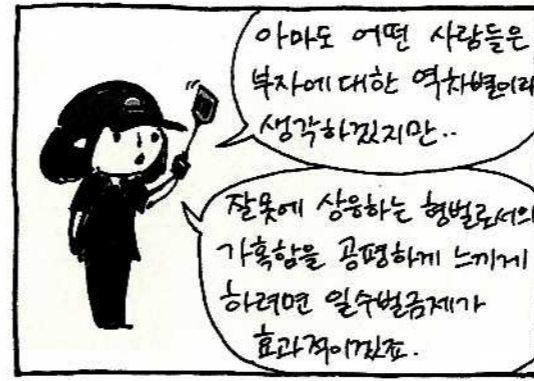 아마도 어떤 사람들은
부자에 대한 역차별이라
생각하겠지만..
잘못에 상응하는 형벌로서의
가혹함을 공평하게 느끼게
하려면 일수벌금제가
효과적이겠죠.